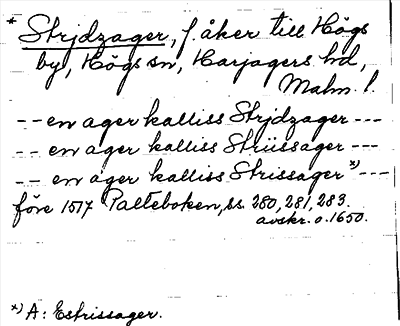 * Strjdzager, f. åker till Högs
by, Högs sn, Harjagers hd,
Malm. l.
-- en ager kalliss Strjdzager ---
-- en ager kalliss Strüssager ---
-- en ager kalliss Strissager *) ---
före 1517 Palteboken, ss. 280, 281, 283.
avskr. o. 1650.
*) A: Estrissager.